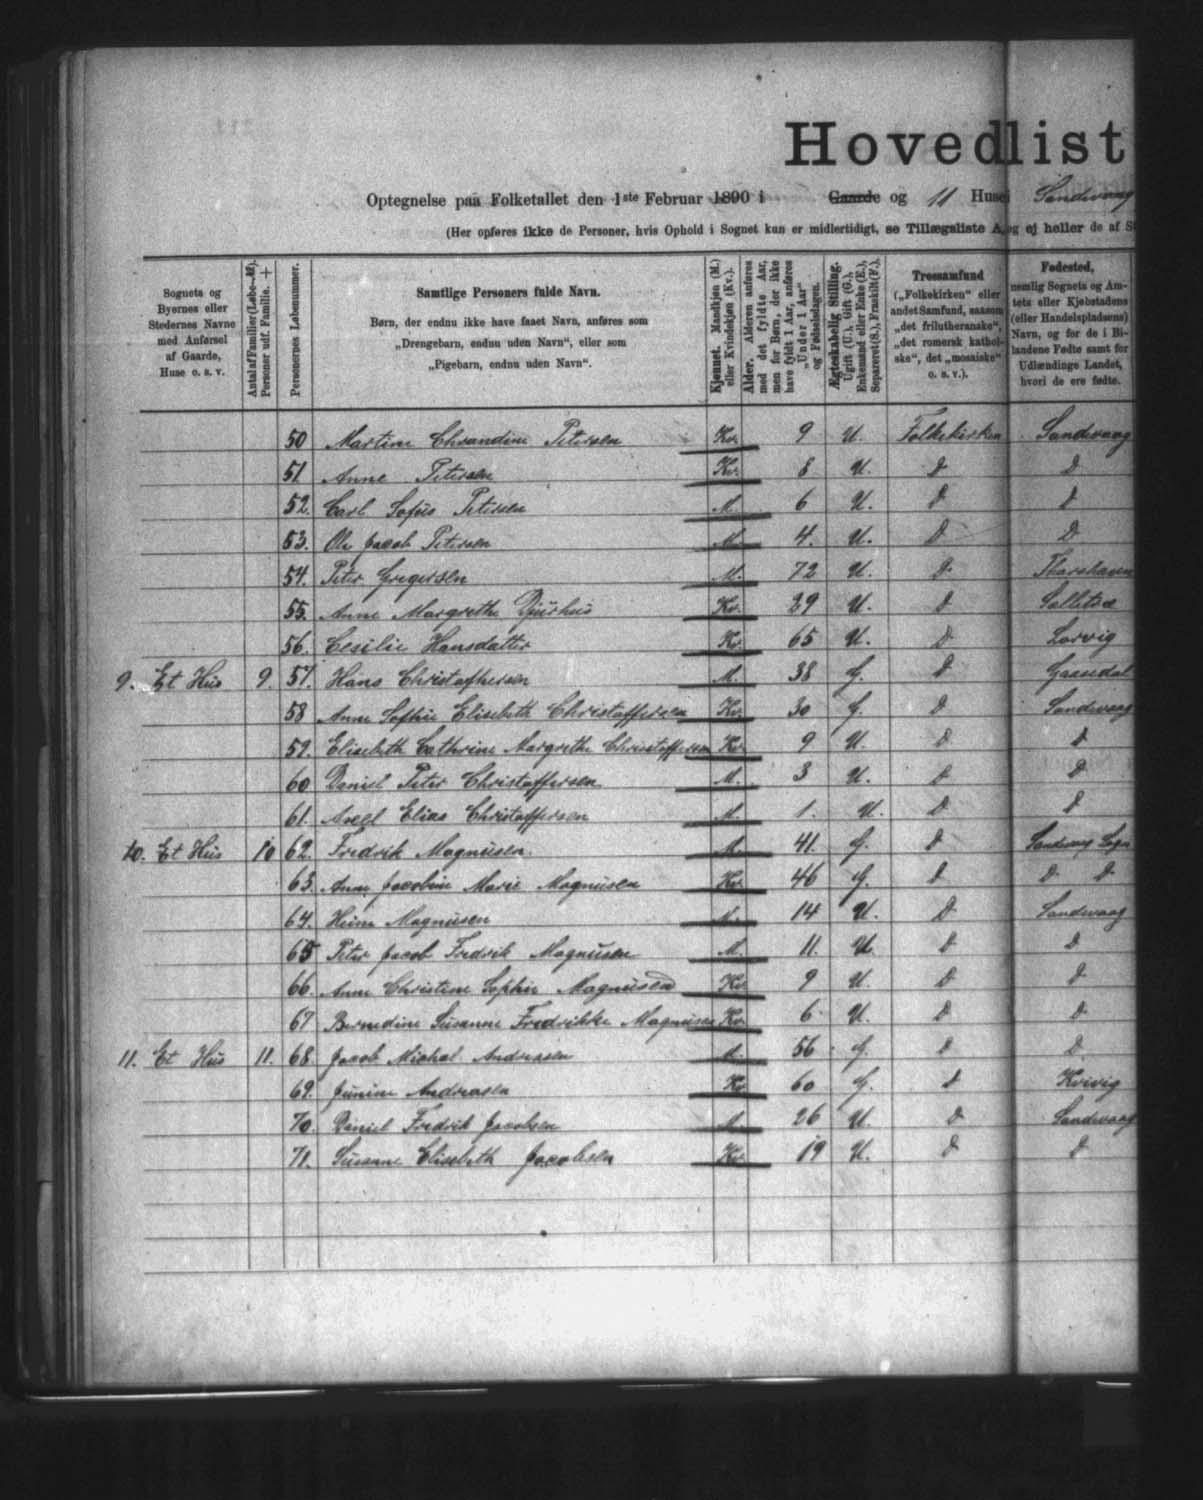 Hovedlist
Optegnelse paa Folketallet den 1ste Februar 1890 i Gaarde og 11 Huse i Sandevaag
(Her opføres ikke de Personer, hvis Ophold i Sognet kun er midlertidigt, se Tillægsliste A, og ej heller de af St
Sognets og Byernes eller Stedernes Navne med Anførsel af Gaarde, Huse o. s. v.
Antal af Familier (Løbe-№). Personer udf. Familie. +
Personernes Løbenummer.
Samtlige Personers fulde Navn.
Børn, der endnu ikke have faaet Navn, anføres som „Drengebarn, endnu uden Navn“, eller som „Pigebarn, endnu uden Navn“.
Kjønnet. Mandkjøn (M.) eller Kvindekjøn (Kv.).
Alder. Alderen anføres med det fyldte Aar, men for Børn, der ikke have fyldt 1 Aar, anføres „Under 1 Aar“ og Fødselsdagen.
Ægteskabelig Stilling. Ugift (U.), Gift (G.), Enkemand eller Enke (E.), Separeret (S.), Fraskilt (F.).
Troessamfund („Folkekirken“ eller andet Samfund, saasom „det frilutheranske“, „det romersk katholske“, det „mosaiske“ o. s. v.).
Fødested, nemlig Sognets og Amtets eller Kjøbstadens (eller Handelspladsens) Navn, og for de i Bilandene Fødte samt for Udlændinge Landet, hvori de ere fødte.
50 Martine Chrandine Petersen Kv. 9 U. Folkekirken Sandevaag
51 Anne Petersen Kv. 8 U. D D
52. Carl Sofus Petersen M. 6 U. D D
53. Ole Jacob Petersen M. 4. U. D D
54. Peter Gregersen M. 72 U. D Thorshavn
55. Anne Margrethe Djurhus Kv. 29 U. D
56. Cesilie Hansdatter Kv. 65 U. D Lorvig
9. Et Hus 9. 57. Hans Christoffersen M. 38 G. D Gaasedal
58 Anne Sofhie Elisebeth Christoffersen Kv. 30 G. D Sandevaag
59. Elisebeth Cathrine Margrethe Christoffersen Kv. 9 U. D D
60 Daniel Peter Christoffersen M. 3 U. D D
61. Axel Elias Christoffersen M. 1. U. D D
10. Et Hus 10 62. Fredrik Magnusen M. 41. G. D Sandevaag Sogn
63. Anne Jacobine Marie Magnusen Kv. 46 G. D D D
64. Heine Magnusen M. 14 U. D Sandevaag
65 Peter Jacob Fredrik Magnusen M. 11. U. D D
66. Anne Christine Sophie Magnusen Kv. 9 U. D D
67 Bernedine Susanne Fredrikke Magnusen Kv. 6 U. D D
11. Et Hus 11. 68. Jacob Michal Andreasen M. 56 G. D D
69. Junine Andreasen Kv. 60 G. D Kvivig
70. Daniel Fredrik Jacobsen M. 26 U. D Sandevaag
71. Susanne Elisebeth Jacobsen Kv. 19 U. D D